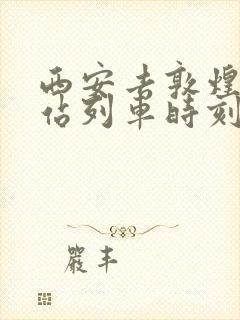 西安去敦煌
佔列車時刻
嚴丰